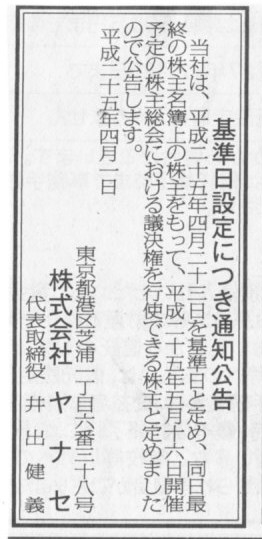 基準日設定につき通知公告
当社は、平成二十五年四月二十三日を基準日と定め、同日最
終の株主名簿上の株主をもって、平成二十五年五月十六日開催
予定の株主総会における議決権を行使できる株主と定めました
ので公告します。
平成二十五年四月一日
東京都港区芝浦一丁目六番三十八号
株式会社 ヤナセ
代表取締役 井出健義